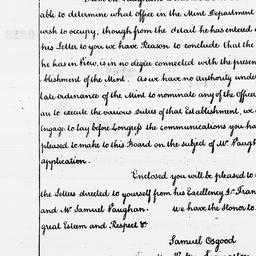 able to determine what office in the Mint Department
wish to occupy, though from the detail he has entered
his Letter to you we have Reason to conclude that the
he has in View, is in no degree connected with the present
blishment of the Mint. As we have no authority under
late ordinance of the Mint to nominate any of the Officers
an to execute the various Duties of that Establishment, we
Engage to lay before Congress the communications you ha
pleased to make to this Board on the subject of Mr. Paugh
application.
Enclosed you will be pleased to
the Letters directed to yourself from his Excellency Dr. Fran
and Mr. Samuel Paughan. We have the Honor to
great Esteem and Respect &c.
Samuel Osgood